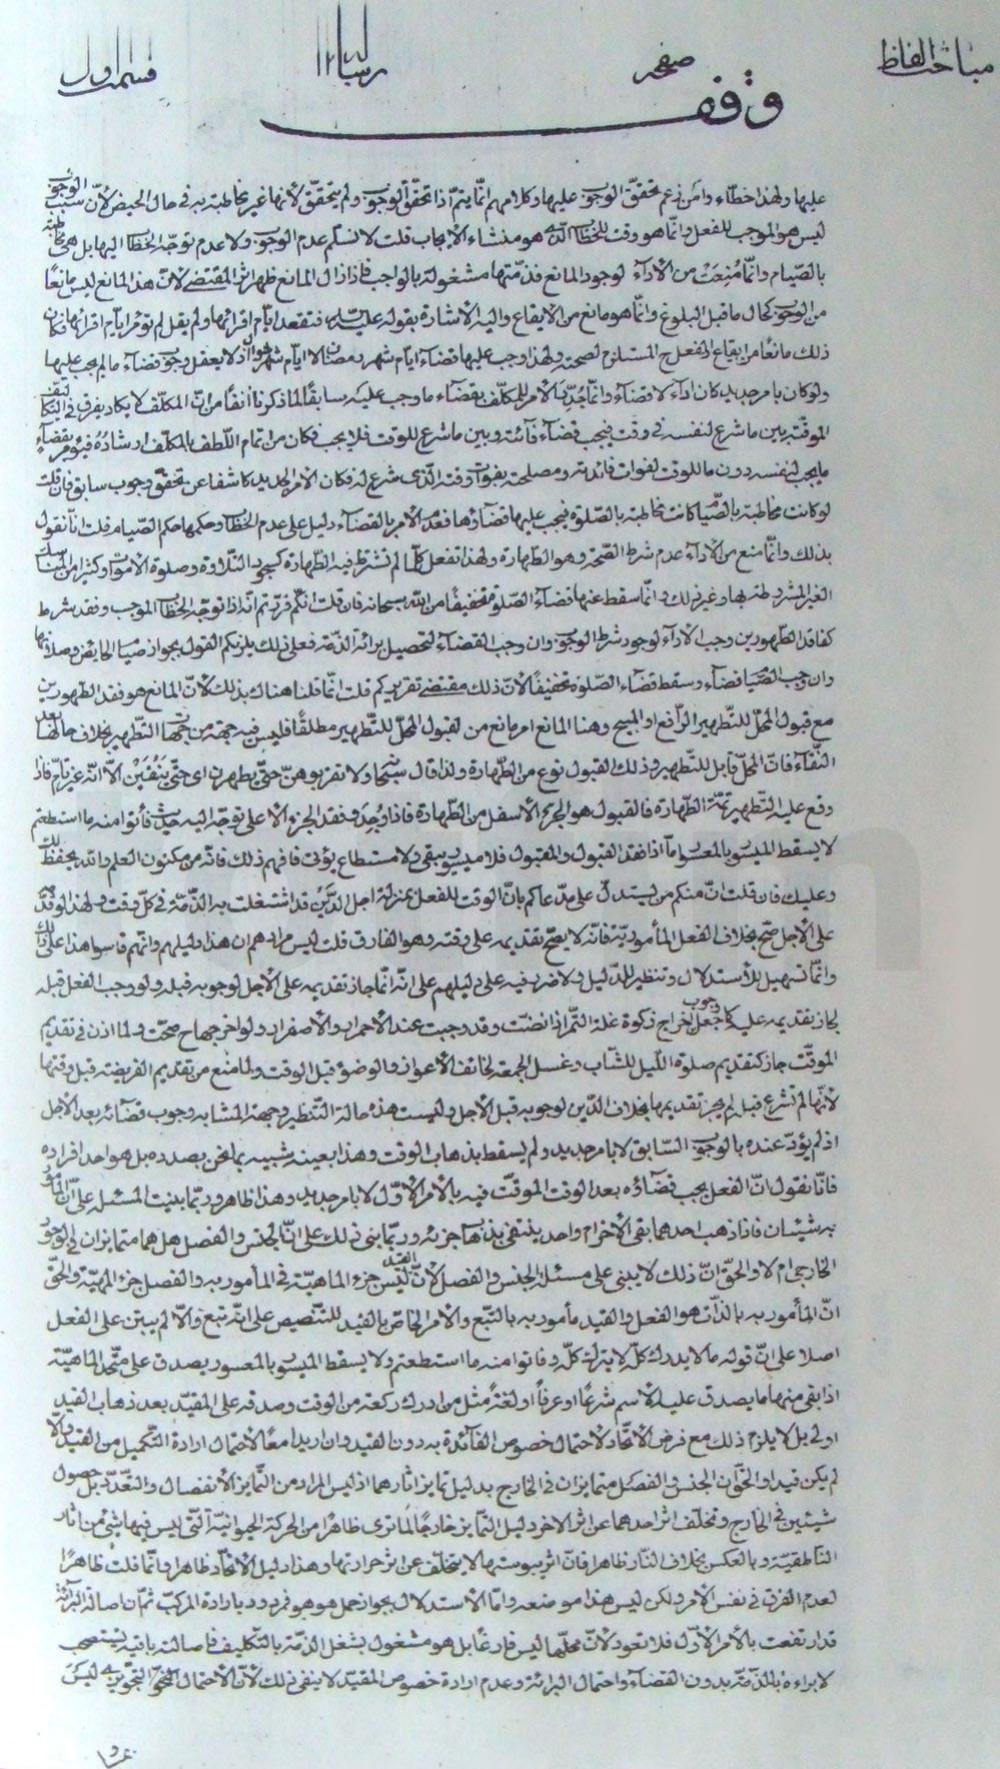 مباحث الفاظ صفحه رسالة ۱۲ قسمت اول
وقف
عليها ولهذا خطاء وامن زعم تحقق الوجوب عليها وكلامهم انّما يتمّ اذا تحقّق الوجوب ولم يتحقّق لأنها غير مخاطبة به في حال الحيض لأنّ سبب الوجوب
ليس هو الموجب للفعل وانّما هو وقت للخطاب الّذى هو منشاء الايجاب قلت لا نسلّم عدم الوجوب ولا عدم توجّه الخطاب اليها بل هى مخاطبة
بالصّيام وانّما مُنِعَتْ من الأداء لوجود المانع فذمّتها مشغولة بالواجب فاذا زال المانع ظهر اثر المقتضى لانّ هذا المانع ليس مانعاً
من الوجوب كحال ما قبل البلوغ وانّما هو مانع من الايقاع واليه الاشارة بقوله فتقعد ايّام اقرائها ولم يقل لم تؤمر ايّام اقرائها فكان
ذلك مانعاً من ايقاع الفعل المستلزم لصحته ولهذا وجب عليها قضاء ايّام شهر رمضان لا ايّام شهر شوال اذ لا يعقل وجوب قضاء ما لم يجب عليها
ولو كان بامر جديد كان اداء لا قضاء وانّما جُدّد الأمر للمكلّف بقضاء ما وجب عليه سابقاً لما ذكرنا آنفاً من انّ المكلّف لا يكاد يفرق في التكاليف
الموقّتة بين ما شرع لنفسه في وقت فيجب قضاء فائته وبين ما شرع للوقت فلا يجب فكان من تمام اللّطف بالمكلّف ارشاده فيؤمر بقضاء
ما يجب لنفسه دون ما للوقت لفوات فائدته ومصلحته بفوات وقته الّذى شرع له فكان الأمر الجديد كاشفا عن تحقّق وجوب سابق فان قلت
لو كانت مخاطبة بالصّيام كانت مخاطبة بالصّلوة فيجب عليها قضاؤها فعدم الامر بالقضاء دليل على عدم الخطاب وحكمها حكم الصّيام قلت انا نقول
بذلك وانّما منع من الأداء عدم شرط الصّحة وهو الطّهارة ولهذا تفعل كلّما لم تشترط فيه الطّهارة كسجود التلاوة وصلوة الاموات وكثير من المناسك
الغير المشروطة بها وغير ذلك وانّما سقط عنها قضاء الصّلوة تخفيفاً من الله سبحانه فان قلت انّكم قرّرتم انّه اذا توجّه الخطاب الموجب وفقد شرط
كفاقد الطّهورين وجب الأداء لوجود شرط الوجوب وان وجب القضاء لتحصيل برائة الذمّة فعلى ذلك يلزمكم القول بجواز صيام الحايض وصلاتها
وان وجب الصّيام قضاء وسقط قضاء الصّلوة تخفيفاً لأنّ ذلك مقتضى تقريركم قلت انّما قلنا هناك بذلك لانّ المانع هو فقد الطّهورين
مع قبول المحلّ للتّطهير الرّافع او المبيح وهنا المانع امر مانع من قبول المحلّ للتّطهير مطلقاً فليس فيه جهة من جهات التّطهير بخلاف حالها بعد
النّقاء فانّ المحلّ قابل للتّطهير وذلك القبول نوع من الطّهارة ولذا قال سبحانه ولا تقربوهنّ حتّى يطهرن اى حتّى يَنْقَيْن الّا انّه غير تامّ فاذا
وقع عليه التّطهير تمّت الطّهارة فالقبول هو الجزء الأسفل من الطّهارة فاذا وُجِد وفقد الجزء الأعلى توجّه اليه حيث فأتوا منه ما استطعتم
لا يسقط الميسور بالمعسور امّا اذا فقد القبول والمقبول فلا ميسور يبقى ولا مستطاع يؤتى فافهم ذلك فانّه من مكنون العلم والله يحفظ لك
وعليك فان قلت انّ منكم من يستدلّ على مدّعاكم بانّ الوقت للفعل بمنزلة اجل الدّين قد اشتغلت به الذّمّة في كلّ وقت ولهذا لو قدّمه
على الأجل صحّ بخلاف الفعل المأمور به فانّه لا يصحّ تقديمه على وقته وهو الفارق قلت ليس مرادهم ان هذا دليلهم وانّهم قاسوا هذا على ذلك
وانّما تسهيل للأستدلال وتنظير للدّليل ولا ضرر فيه على دليلهم على انّه انّما جاز تقديمه على الأجل لوجوبه قبله ولو وجب الفعل قبله
لجاز تقديمه عليه كما جعل وجوب اخراج زكوة غلة التّمر اذا نضت وقد وجبت عند الأحمرار والأصفرار ولو اخرجها ح صحّت ولما اذن في تقديم
الموقّت جاز كتقديم صلوة اللّيل للشّاب وغسل الجمعة لخائف الأعواز والوضوء قبل الوقت ولما منع من تقديم الفريضة قبل وقتها
لأنّها لم تشرع قبله لم يجز تقديمها بخلاف الدّين لوجوبه قبل الأجل وليست هذه حالة التنظير وجهة المشابه وجوب قضائه بعد الأجل
اذا لم يؤدّ عنده بالوجوب السّابق لا بامر جديد ولم يسقط بذهاب الوقت وهذا بعينه شبيه بما نحن بصدده بل هو احد افراده
فانّا نقول انّ الفعل يجب قضاؤه بعد الوقت الموقّت فيه بالأمر الأوّل لا بامر جديد وهذا ظاهر وربّما بنيت المسئلة على انّ المأمور
به شيئان فاذا ذهب احدهما بقى الأخر ام واحد ينتفى بذهاب جزئه وربّما بنى ذلك على انّ الجنس والفصل هل هما متمايزان في الوجود
الخارجى ام لا والحقّ انّ ذلك لا يبنى على مسئلة الجنس والفصل لأنّ القيد ليس جزء الماهيّة في المأمور به والفصل جزء المهيّة والحقّ
انّ المأمور به بالذّات هو الفعل والقيد مأمور به بالتّبع والأمر الخاصّ بالقيد للتّنصيص على انّه تبع والّا لم يبتن على الفعل
اصلا على انّ قوله ما لا يدرك كلّه لا يترك كلّه وفأتوا منه ما استطعتم ولا يسقط الميسور بالمعسور يصدق على متّحد الماهيّة
اذا بقى منها ما يصدق عليه الاسم شرعاً او عرفاً او لغةً مثل من ادرك ركعة من الوقت وصدقه على المقيّد بعد ذهاب القيد
اولى بل لا يلزم ذلك مع فرض الأتّحاد لاحتمال خصوص الفائدة به دون القيد وان اريدا معاً لاحتمال ارادة التكميل من القيد والّا
لم يكن قيدا والحقّ انّ الجنس والفصل متمايزان في الخارج بدليل تمايز اثارهما اذ ليس المراد من التّمايز الأنفصال والتّعدّد بل حصول
شيئين في الخارج وتخلّف اثر احدهما عن اثر الاخر دليل التّمايز خارجاً لما ترى ظاهرا من الحركة الحيوانيّة الّتى ليس فيها شئ من اثار
النّاطقيّة وبالعكس بخلاف النّار ظاهرا فانّ اثر يبوستها لا يتخلّف عن اثر حرارتها وهذا دليل الأتّحاد ظاهرا وانّما قلت ظاهرا
لعدم الفرق في نفس الأمر ولكن ليس هذا موضعه وامّا الأستدلال بجواز حمل هو هو فمردود بارادة المركّب ثمّ انّ اصالة البرائة
قد ارتفعت بالأمر الأوّل فلا تعود لأنّ محلّها ليس فارغا بل هو مشغول بشغل الذمّة بالتكليف فاصالته باقية يستصحب
لا براءة بالذمّة بدون القضاء واحتمال البرائة وعدم ارادة خصوص المقيّد لا ينفى ذلك لأنّ الأحتمال التجويزى ليس